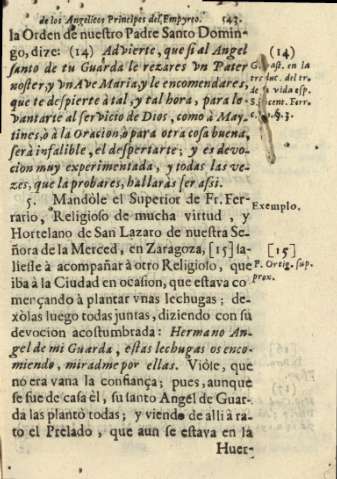 de los Angelicos Principes del Empyreo. 143.
la Orden de nuestro Padre Santo Domin-
go, dize: (14) Advierte, que si al Angel
santo de tu Guarda le rezares vn Pater
noster, y vn Ave Maria, y le encomendares,
que te despierte à tal, y tal hora, para le-
vantarte al servicio de Dios, como à May-
tines, ò à la Oracion, ò para otra cosa buena,
serà infalible, el despertarte; y es devo-
cion muy experimentada, y todas las ve-
zes, que la probares, hallaràs ser assi.
5. Mandòle el Superior de Fr. Fer-
rario, Religioso de mucha virtud, y
Hortelano de San Lazaro de nuestra Se-
ñora de la Merced, en Zaragoza, [15] sa-
liesse à acompañar à otro Religioso, que
iba à la Ciudad en ocasion, que estava co-
merçando à plantar vnas lechugas; de-
xòlas luego todas juntas, diziendo con su
devocion acostumbrada: Hermano An-
gel de mi Guarda, estas lechugas os enco-
miendo, miradme por ellas. Viòse, que
no era vana la confiança; pues, aunque
se fue de casa èl, su santo Angel de Guar-
da las plantò todas; y viendo de alli à ra-
to el Prelado, que aun se estava en la
Huer-
(14)
en la
del tr.
vida esp.
Ferr.
§.3.
Exemplo.
[15]
P. Ortig. sup.
prox.